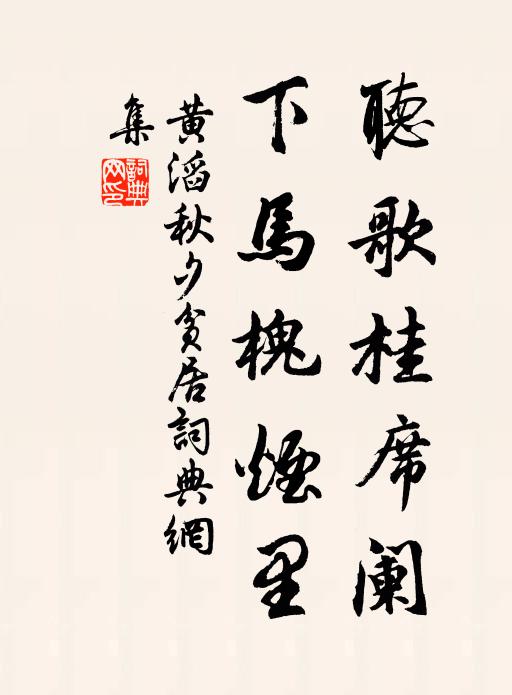 聽歌桂席阑
下馬槐煙里
黄滔秋夕贫居詞典網
集
詞典網印